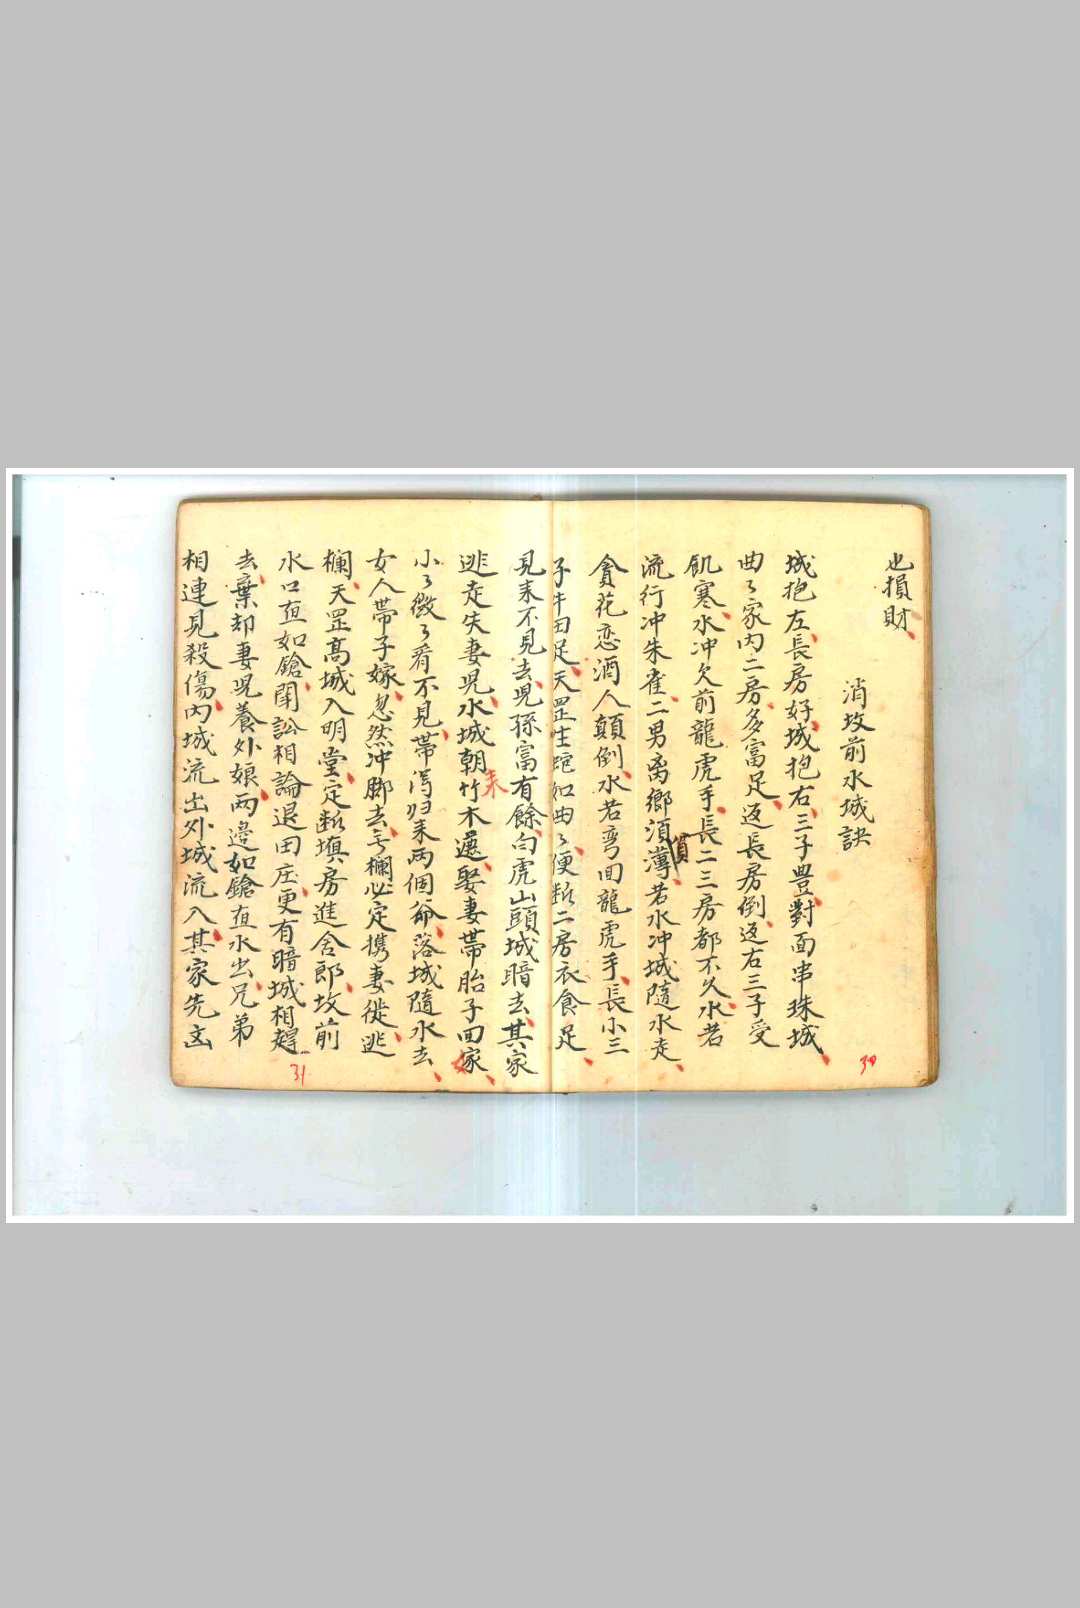 也損財
消坟前水城訣
城抱左長房好城抱右三子豊對面串珠城
曲々家内二房多富足返長房倒返右三子受
飢寒水冲欠前龍虎手長二三房都不久水若
流行冲朱雀二男离鄉須薄若水冲城隨水走
貪花恋酒人顛倒水若弯回龍虎手長小三
子牛田足天罡生蛇如曲々便断二房衣食足
見来不見去児孫富有餘白虎山頭城暗去其家
逃走失妻児水城朝竹木還娶妻帯胎子回家
来
小々微々看不見帯瀉归来两個爺落城隨水去
女人帯子嫁忽然冲脚去無欄必定携妻徙逃
欄天罡高城入明堂定断填房進舍郎坟前
水口直如鎗鬧訟相論退田庄更有暗城相
去棄却妻児養外娘两邉如鎗直水出兄弟
相連見殺傷内城流出外城流入其家先
30
31